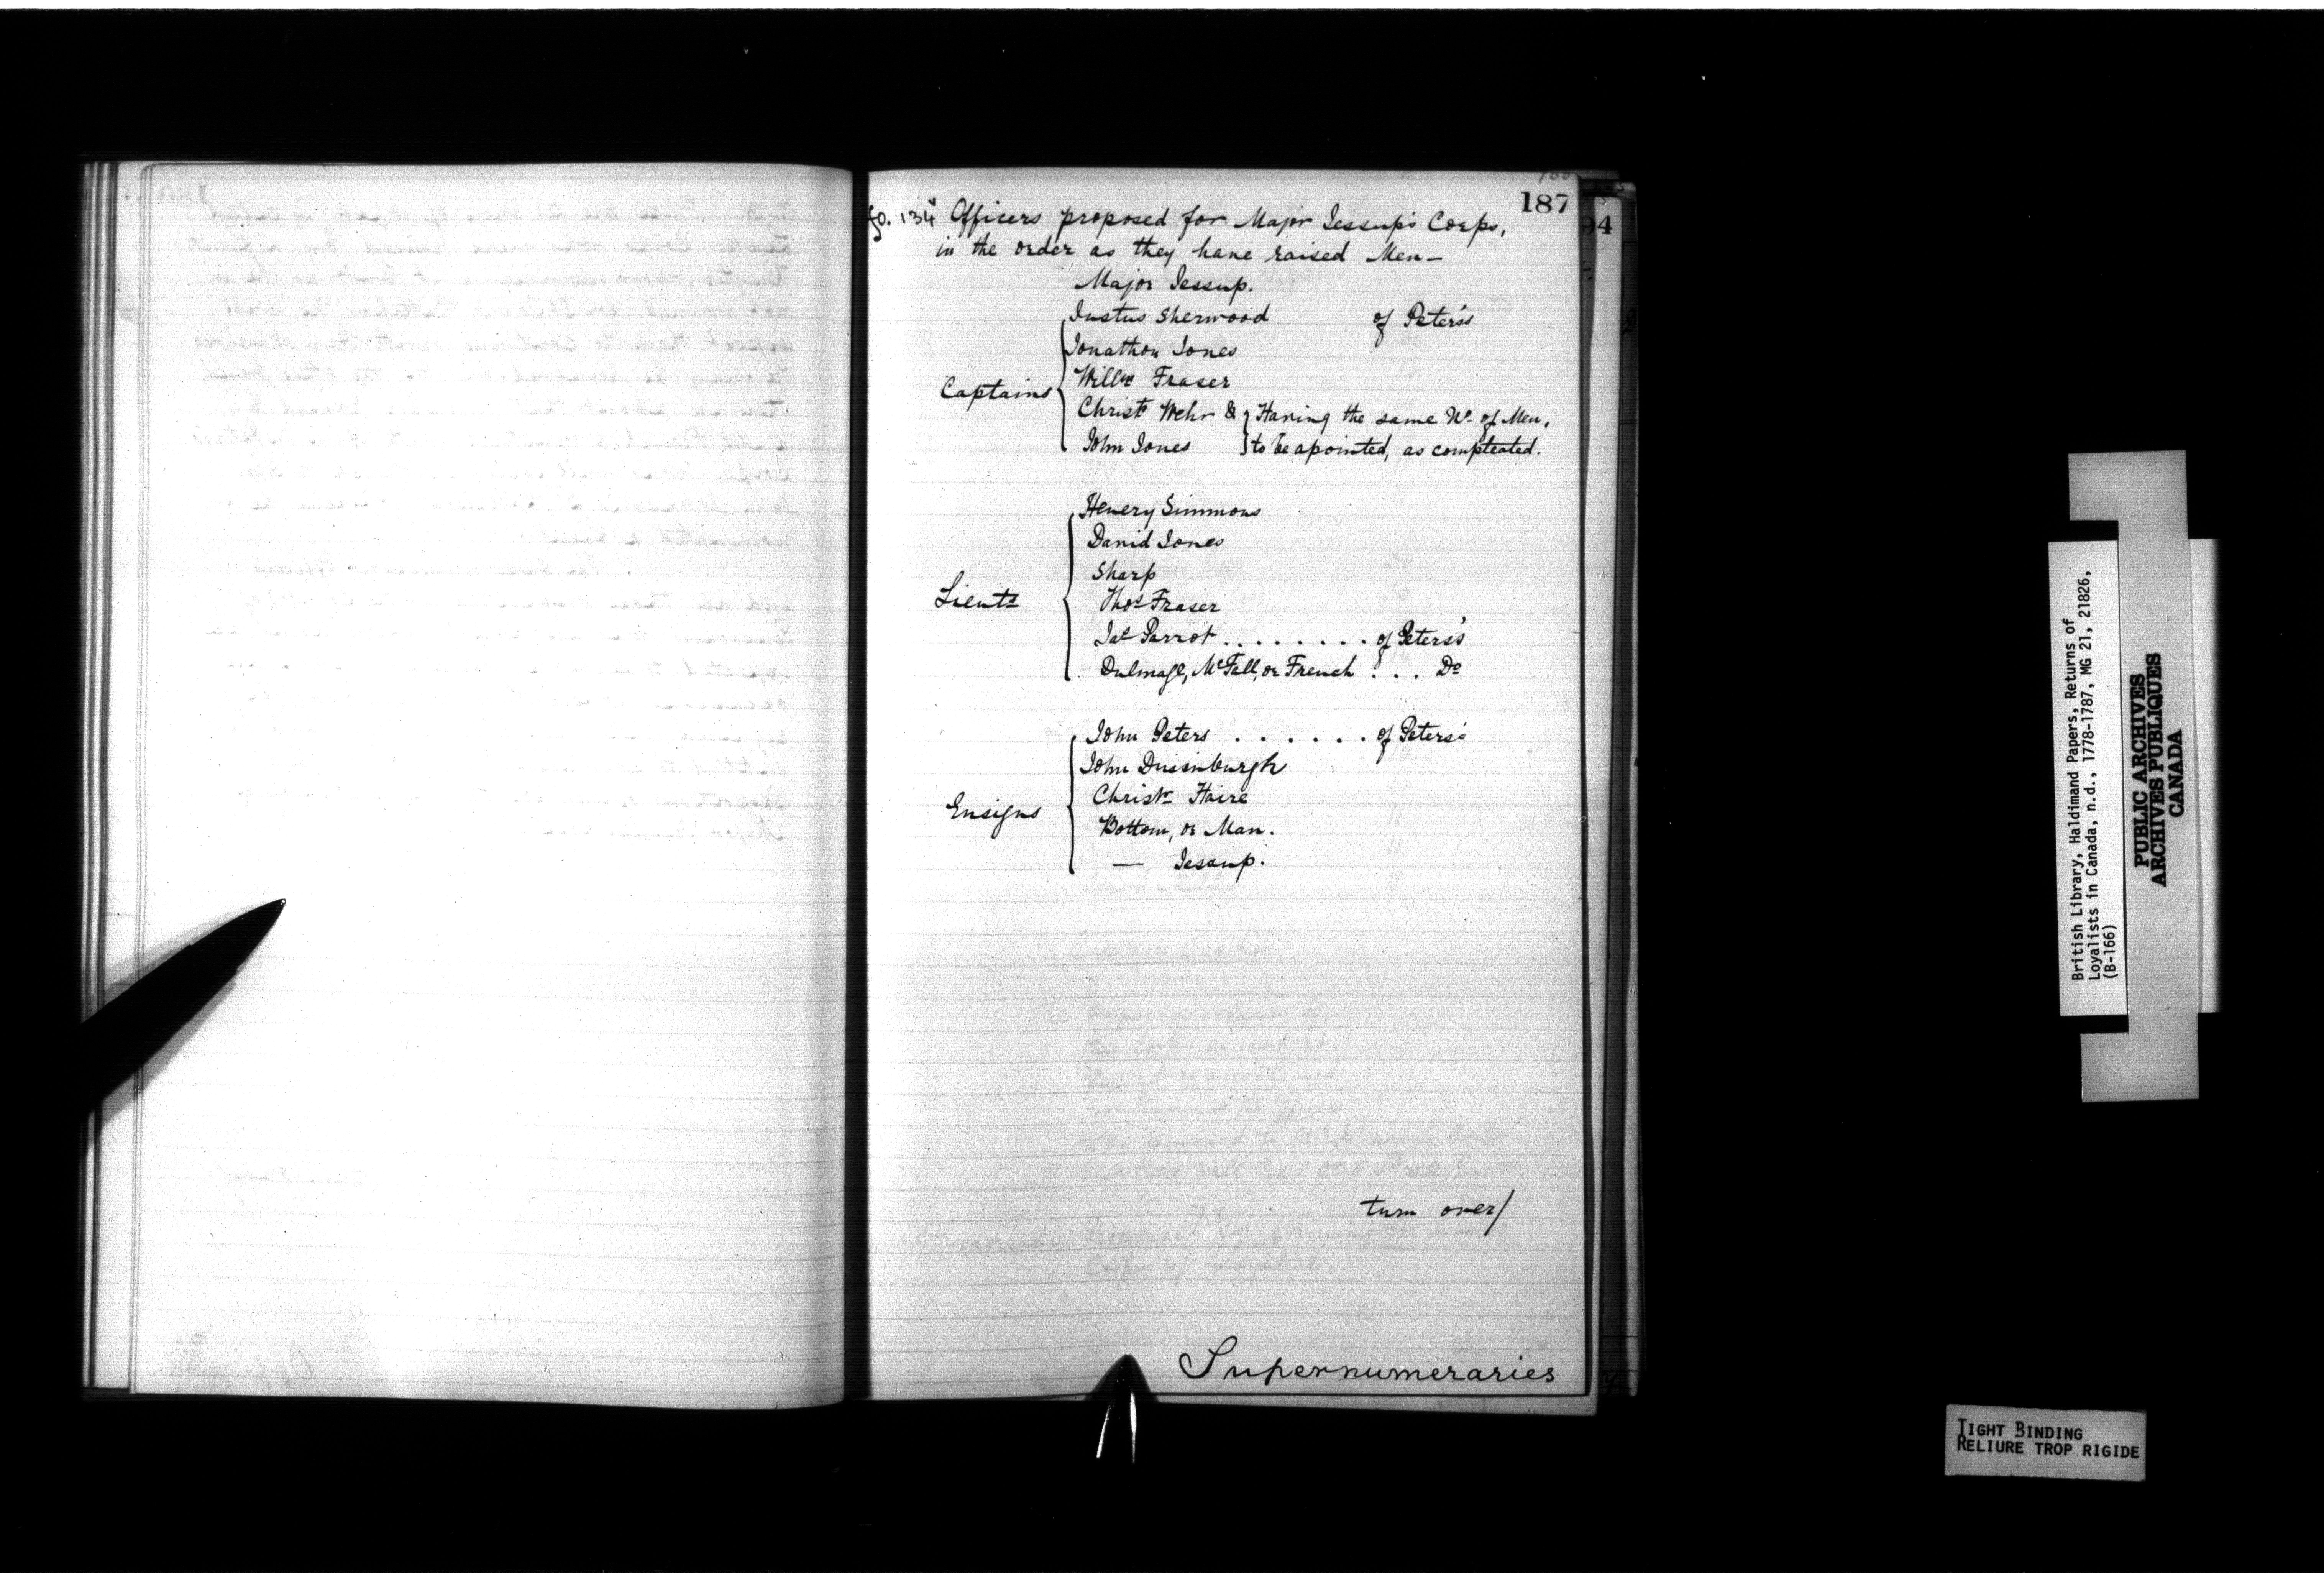 187
fo. 134 Officers proposed for Major Jessup's Corps,
in the order as they have raised Men—
Major Jessup.
Captains
Justus Sherwood of Peters's
Jonathon Jones
Willm Fraser
Christr Wehr & } Having the same No. of Men,
John Jones } to be apointed, as compleated.
Lieuts
Henery Simmons
David Jones
Sharp
Thos Fraser
Jas Parrot . . . . . . . . of Peters's
Dulmage, McFall, or French . . . Do
Ensigns
John Peters . . . . . . of Peters's
John Dusenburgh
Christr Haire
Bottom, or Man.
— Jessup.
turn over/
Supernumeraries
94
British Library, Haldimand Papers, Returns of
Loyalists in Canada, n.d., 1778-1787, MG 21, 21826,
(B-166)
PUBLIC ARCHIVES
ARCHIVES PUBLIQUES
CANADA
TIGHT BINDING
RELIURE TROP RIGIDE